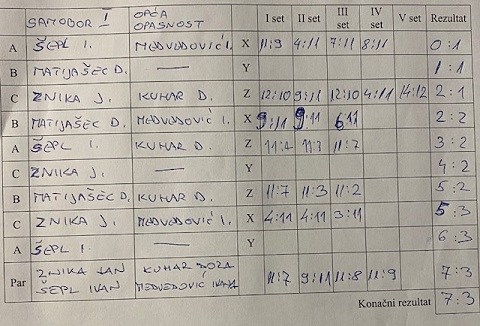 SAMOBOR I OPĆA OPASNOST I set II set III set IV set V set Rezultat
A ŠEPL I. MEDVEDOVIĆ I. X 11:9 4:11 7:11 8:11 0:1
B MATIJAŠEC D. — Y 1:1
C ZNIKA J. KUHAR D. Z 12:10 9:11 12:10 4:11 14:12 2:1
B MATIJAŠEC D. MEDVEDOVIĆ I. X 9:11 9:11 6:11 2:2
A ŠEPL I. KUHAR D. Z 11:4 11:7 11:7 3:2
C ZNIKA J. — Y 4:2
B MATIJAŠEC D. KUHAR D. Z 11:7 11:3 11:2 5:2
C ZNIKA J. MEDVEDOVIĆ I. X 4:11 4:11 3:11 5:3
A ŠEPL I. — Y 6:3
Par ZNIKA JAN KUHAR 11:7 9:11 11:8 11:9 7:3
ŠEPL IVAN MEDVEDOVIĆ IVANA
Konačni rezultat 7:3